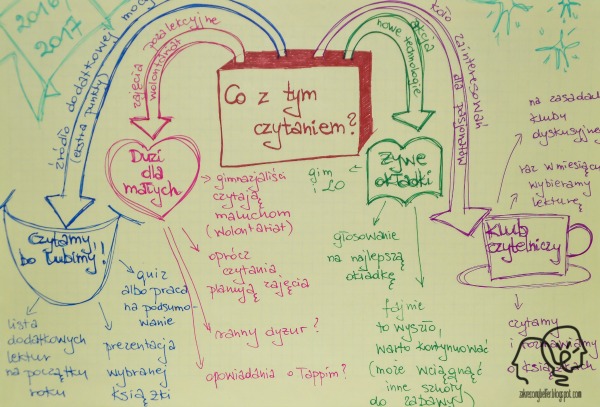 2016/
2017
źródło dodatkowej mocy
(ekstra punkty)
zajęcia pozalekcyjne
wolontariat
akcja
nowe technologie
koło zainteresowań
dla pasjonatów
Co z tym
czytaniem?
Duzi
dla
małych
gimnazjaliści
czytają
maluchom
(wolontariat)
oprócz
czytania
planują zajęcia
ranny dyżur?
opowiadania o Tappim?
Czytamy,
bo lubimy!!
lista
dodatkowych
lektur
na początku
roku
prezentacja
wybranej
książki
quiz
albo praca
na podsumo-
wanie
żywe
okładki
gim
i LO
głosowanie
na najlepszą
okładkę
fajnie
to wyszło,
warto kontynuować
(może wciągnąć
inne szkoły
do zabawy)
Klub
czytelniczy
na zasadach
klubu
dyskusyjnego
raz w miesiącu
wybieramy
lekturę
czytamy
i rozmawiamy
o książkach
zakreconybelfer.blogspot.com